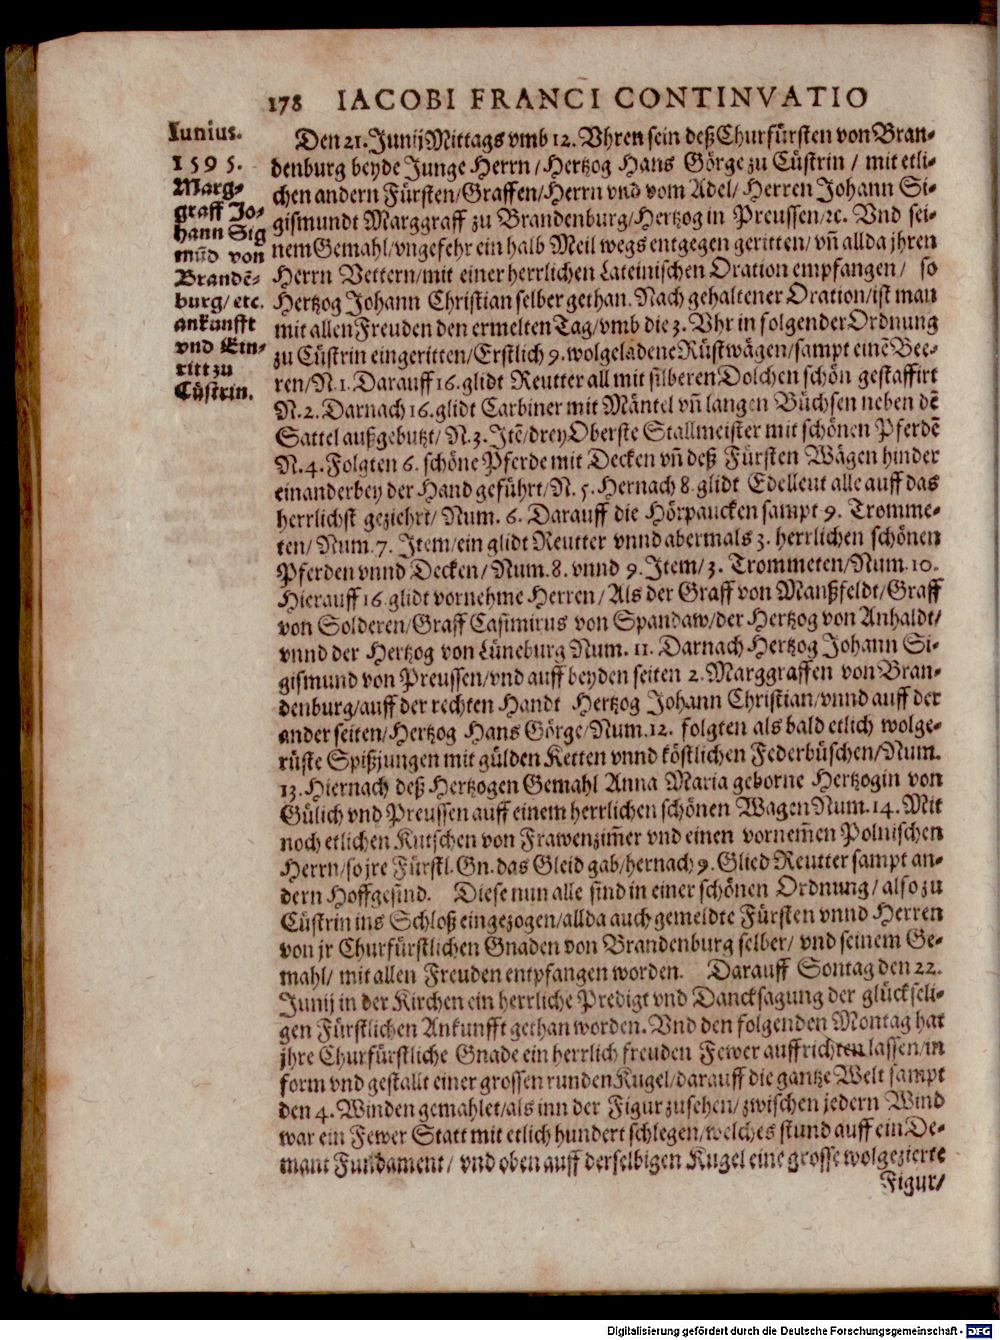 178 IACOBI FRANCI CONTINVATIO
Iunius.
1595.
Marg-
graff Jo-
hann Sig
mũd von
Brandē-
burg/ etc.
ankunfft
vnd Ein-
ritt zu
Cüstrin.
Den 21. Junij Mittags vmb 12. Vhren sein deß Churfürsten von Bran-
denburg beyde Junge Herrn/ Hertzog Hans Görge zu Cüstrin / mit etli-
chen andern Fürsten/Graffen/Herrn vnd vom Adel/ Herren Johann Si-
gismundt Marggraff zu Brandenburg/Hertzog in Preussen/ꝛc. Vnd sei-
nem Gemahl/vngefehr ein halb Meil wegs entgegen geritten/ vñ allda jhren
Herrn Vettern/mit einer herrlichen Lateinischen Oration empfangen/ so
Hertzog Johann Christian selber gethan. Nach gehaltener Oration/ist man
mit allen Freuden den ermelten Tag/vmb die 3. Vhr in folgender Ordnung
zu Cüstrin eingeritten/Erstlich 9. wolgeladene Rüstwägen/sampt einē Bee-
ren/N.1. Darauff 16. glidt Reutter all mit silberen Dolchen schön gestaffirt
N.2. Darnach 16. glidt Carbiner mit Mäntel vñ langen Büchsen neben dē
Sattel außgebutzt/ N.3. Itē/drey Oberste Stallmeister mit schönen Pferdē
N.4. Folgten 6. schöne Pferde mit Decken vñ deß Fürsten Wägen hinder
einanderbey der Hand geführt/N. 5. Hernach 8. glidt Edelleut alle auff das
herrlichst geziehrt/ Num. 6. Darauff die Hörpaucken sampt 9. Tromme-
ten/ Num. 7. Item/ein glidt Reutter vnnd abermals 3. herrlichen schönen
Pferden vnnd Decken/ Num. 8. vnnd 9. Item/ 3. Trommeten/Num. 10.
Hierauff 16. glidt vornehme Herren/ Als der Graff von Manßfeldt/Graff
von Solderen/Graff Casimirus von Spandaw/der Hertzog von Anhaldt/
vnnd der Hertzog von Lüneburg Num. 11. Darnach Hertzog Johann Si-
gismund von Preussen/vnd auff beyden seiten 2. Marggraffen von Bran-
denburg/auff der rechten Handt Hertzog Johann Christian/vnnd auff der
ander seiten/Hertzog Hans Görge/Num.12. folgten als bald etlich wolge-
rüste Spißjungen mit gülden Ketten vnnd köstlichen Federbüschen/Num.
13. Hiernach deß Hertzogen Gemahl Anna Maria geborne Hertzogin von
Gülich vnd Preussen auff einem herrlichen schönen Wagen Num. 14. Mit
noch etlichen Kutschen von Frawenzim̃er vnd einen vornem̃en Polnischen
Herrn/so jre Fürstl. Gn. das Gleid gab/hernach 9. Glied Reutter sampt an-
dern Hoffgesind. Diese nun alle sind in einer schönen Ordnung/ also zu
Cüstrin ins Schloß eingezogen/allda auch gemeldte Fürsten vnnd Herren
von jr Churfürstlichen Gnaden von Brandenburg selber/ vnd seinem Ge-
mahl/ mit allen Freuden entpfangen worden. Darauff Sontag den 22.
Junij in der Kirchen ein herrliche Predigt vnd Dancksagung der glückseli-
gen Fürstlichen Ankunfft gethan worden. Vnd den folgenden Montag hat
jhre Churfürstliche Gnade ein herrlich freuden Fewer auffrichten lassen/in
form vnd gestallt einer grossen runden Kugel/darauff die gantze Welt sampt
den 4. Winden gemahlet/als inn der Figur zusehen/ zwischen jedern Wind
war ein Fewer Statt mit etlich hundert schlegen/welches stund auff ein De-
mant Fundament/ vnd oben auff derselbigen Kugel eine grosse wolgezierte
Figur/
Digitalisierung gefördert durch die Deutsche Forschungsgemeinschaft - DFG